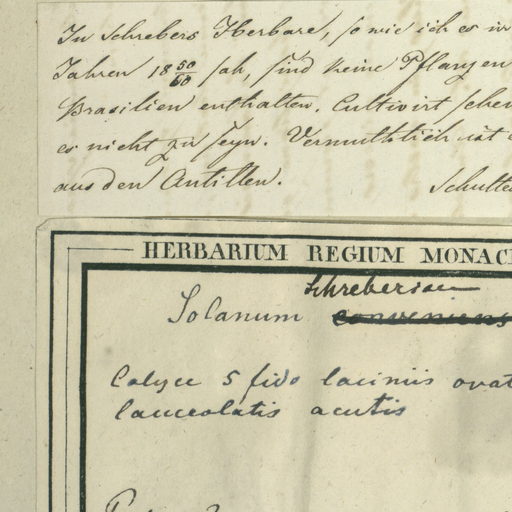 In Schrebers Herbare, so wie ich es in
Jahren 18 50/60 sah, sind keine Pflanzen
Brasilien enthalten. Cultivirt schei
es nicht zu seyn. Vermuthlich ist
aus den Antillen. Schulte
HERBARIUM REGIUM MONAC
Schreberian
Solanum conveniens
Calyce 5 fido laciniis ovat
lanceolatis acutis